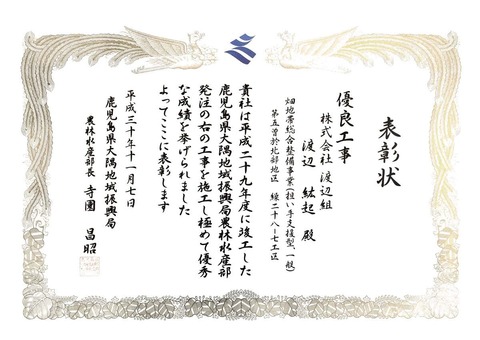 表彰状
優良工事
株式会社 渡辺組
渡辺 紘起 殿
畑地帯総合整備事業(担い手支援型、一般)
第五曽於北部地区 緑二十八ー七工区
貴社は平成二十九年度に竣工した
鹿児島県大隅地域振興局農林水産部
発注の右の工事を施工し極めて優秀
な成績を挙げられました
よってここに表彰します
平成三十年十一月七日
鹿児島県大隅地域振興局
農林水産部長 寺園 昌昭